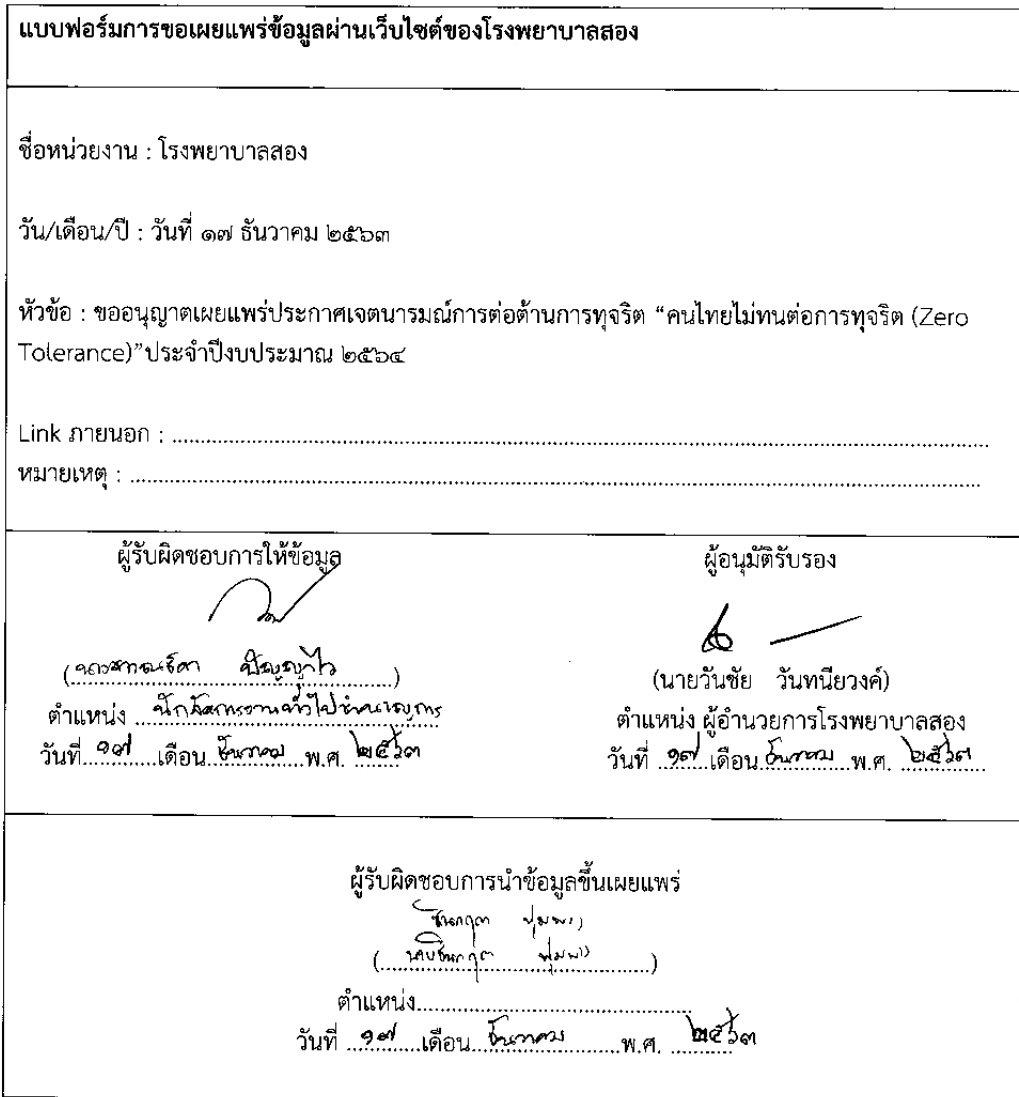 แบบฟอร์มการขอเผยแพร่ข้อมูลผ่านเว็บไซต์ของโรงพยาบาลสอง
ชื่อหน่วยงาน : โรงพยาบาลสอง
วัน/เดือน/ปี : วันที่ ๑๗ ธันวาคม ๒๕๖๓
หัวข้อ : ขออนุญาตเผยแพร่ประกาศเจตนารมณ์การต่อต้านการทุจริต “คนไทยไม่ทนต่อการทุจริต (Zero
Tolerance)”ประจำปีงบประมาณ ๒๕๖๔
Link ภายนอก :
หมายเหตุ :
ผู้รับผิดชอบการให้ข้อมูล
( )
ตำแหน่ง นักจัดการงานทั่วไปชำนาญการ
วันที่ ๑๗ เดือน ธันวาคม พ.ศ. ๒๕๖๓
ผู้อนุมัติรับรอง
(นายวันชัย วันทนียวงค์)
ตำแหน่ง ผู้อำนวยการโรงพยาบาลสอง
วันที่ ๑๗ เดือน ธันวาคม พ.ศ. ๒๕๖๓
ผู้รับผิดชอบการนำข้อมูลขึ้นเผยแพร่
( )
ตำแหน่ง
วันที่ ๑๗ เดือน ธันวาคม พ.ศ. ๒๕๖๓